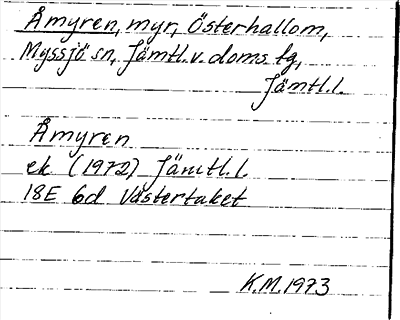 Åmyren, myr, Österhallom,
Myssjö sn, Jämtl. v. doms. tg,
Jämtl. l.
Åmyren
ek (1972) Jämtl. l.
18E 6d Västertaket
K.M. 1973